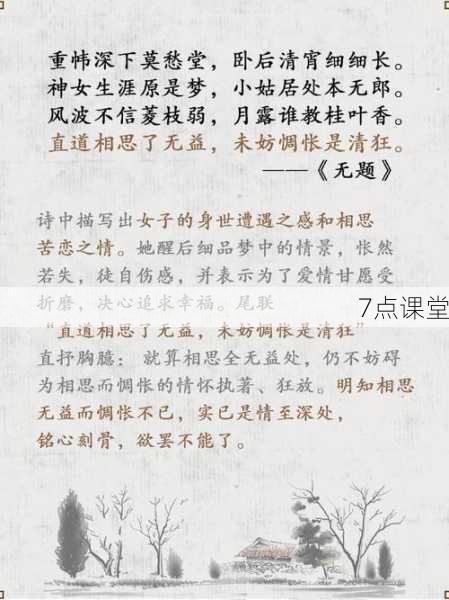 重帏深下莫愁堂，卧后清宵细细长。
神女生涯原是梦，小姑居处本无郎。
风波不信菱枝弱，月露谁教桂叶香。
直道相思了无益，未妨惆怅是清狂。
——《无题》
诗中描写出女子的身世遭遇之感和相思
苦恋之情。她醒后细品梦中的情景，怅然
若失，徒自伤感，并表示为了爱情甘愿受
折磨，决心追求幸福。尾联
7点课堂
“直道相思了无益，未妨惆怅是清狂”
直抒胸臆：就算相思全无益处，仍不妨碍
为相思而惆怅的情怀执著、狂放。明知相思
无益而惆怅不已，实已是情至深处，
铭心刻骨，欲罢不能了。